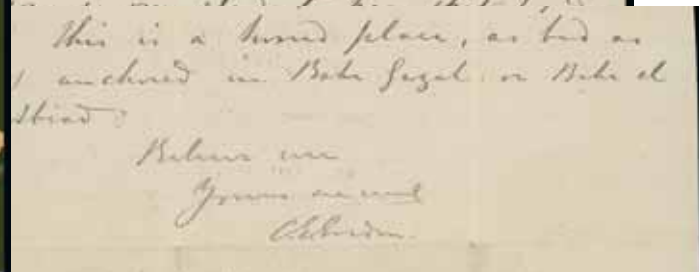 this is a horrid place, as bad as
anchored in Bahr Gazal or Bahr el
Abiad.
Believe me
Yours sincerely
C G Gordon.